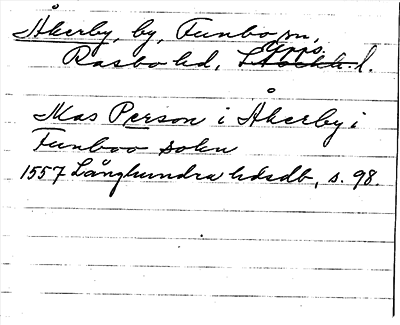 Åkerby, by, Funbo sn,
Upps.
Rasbo hd, Stockh. l.
Mas Person i Åkerby i
Funboo sokn
1557 Långhundra hdsdb, s. 98.